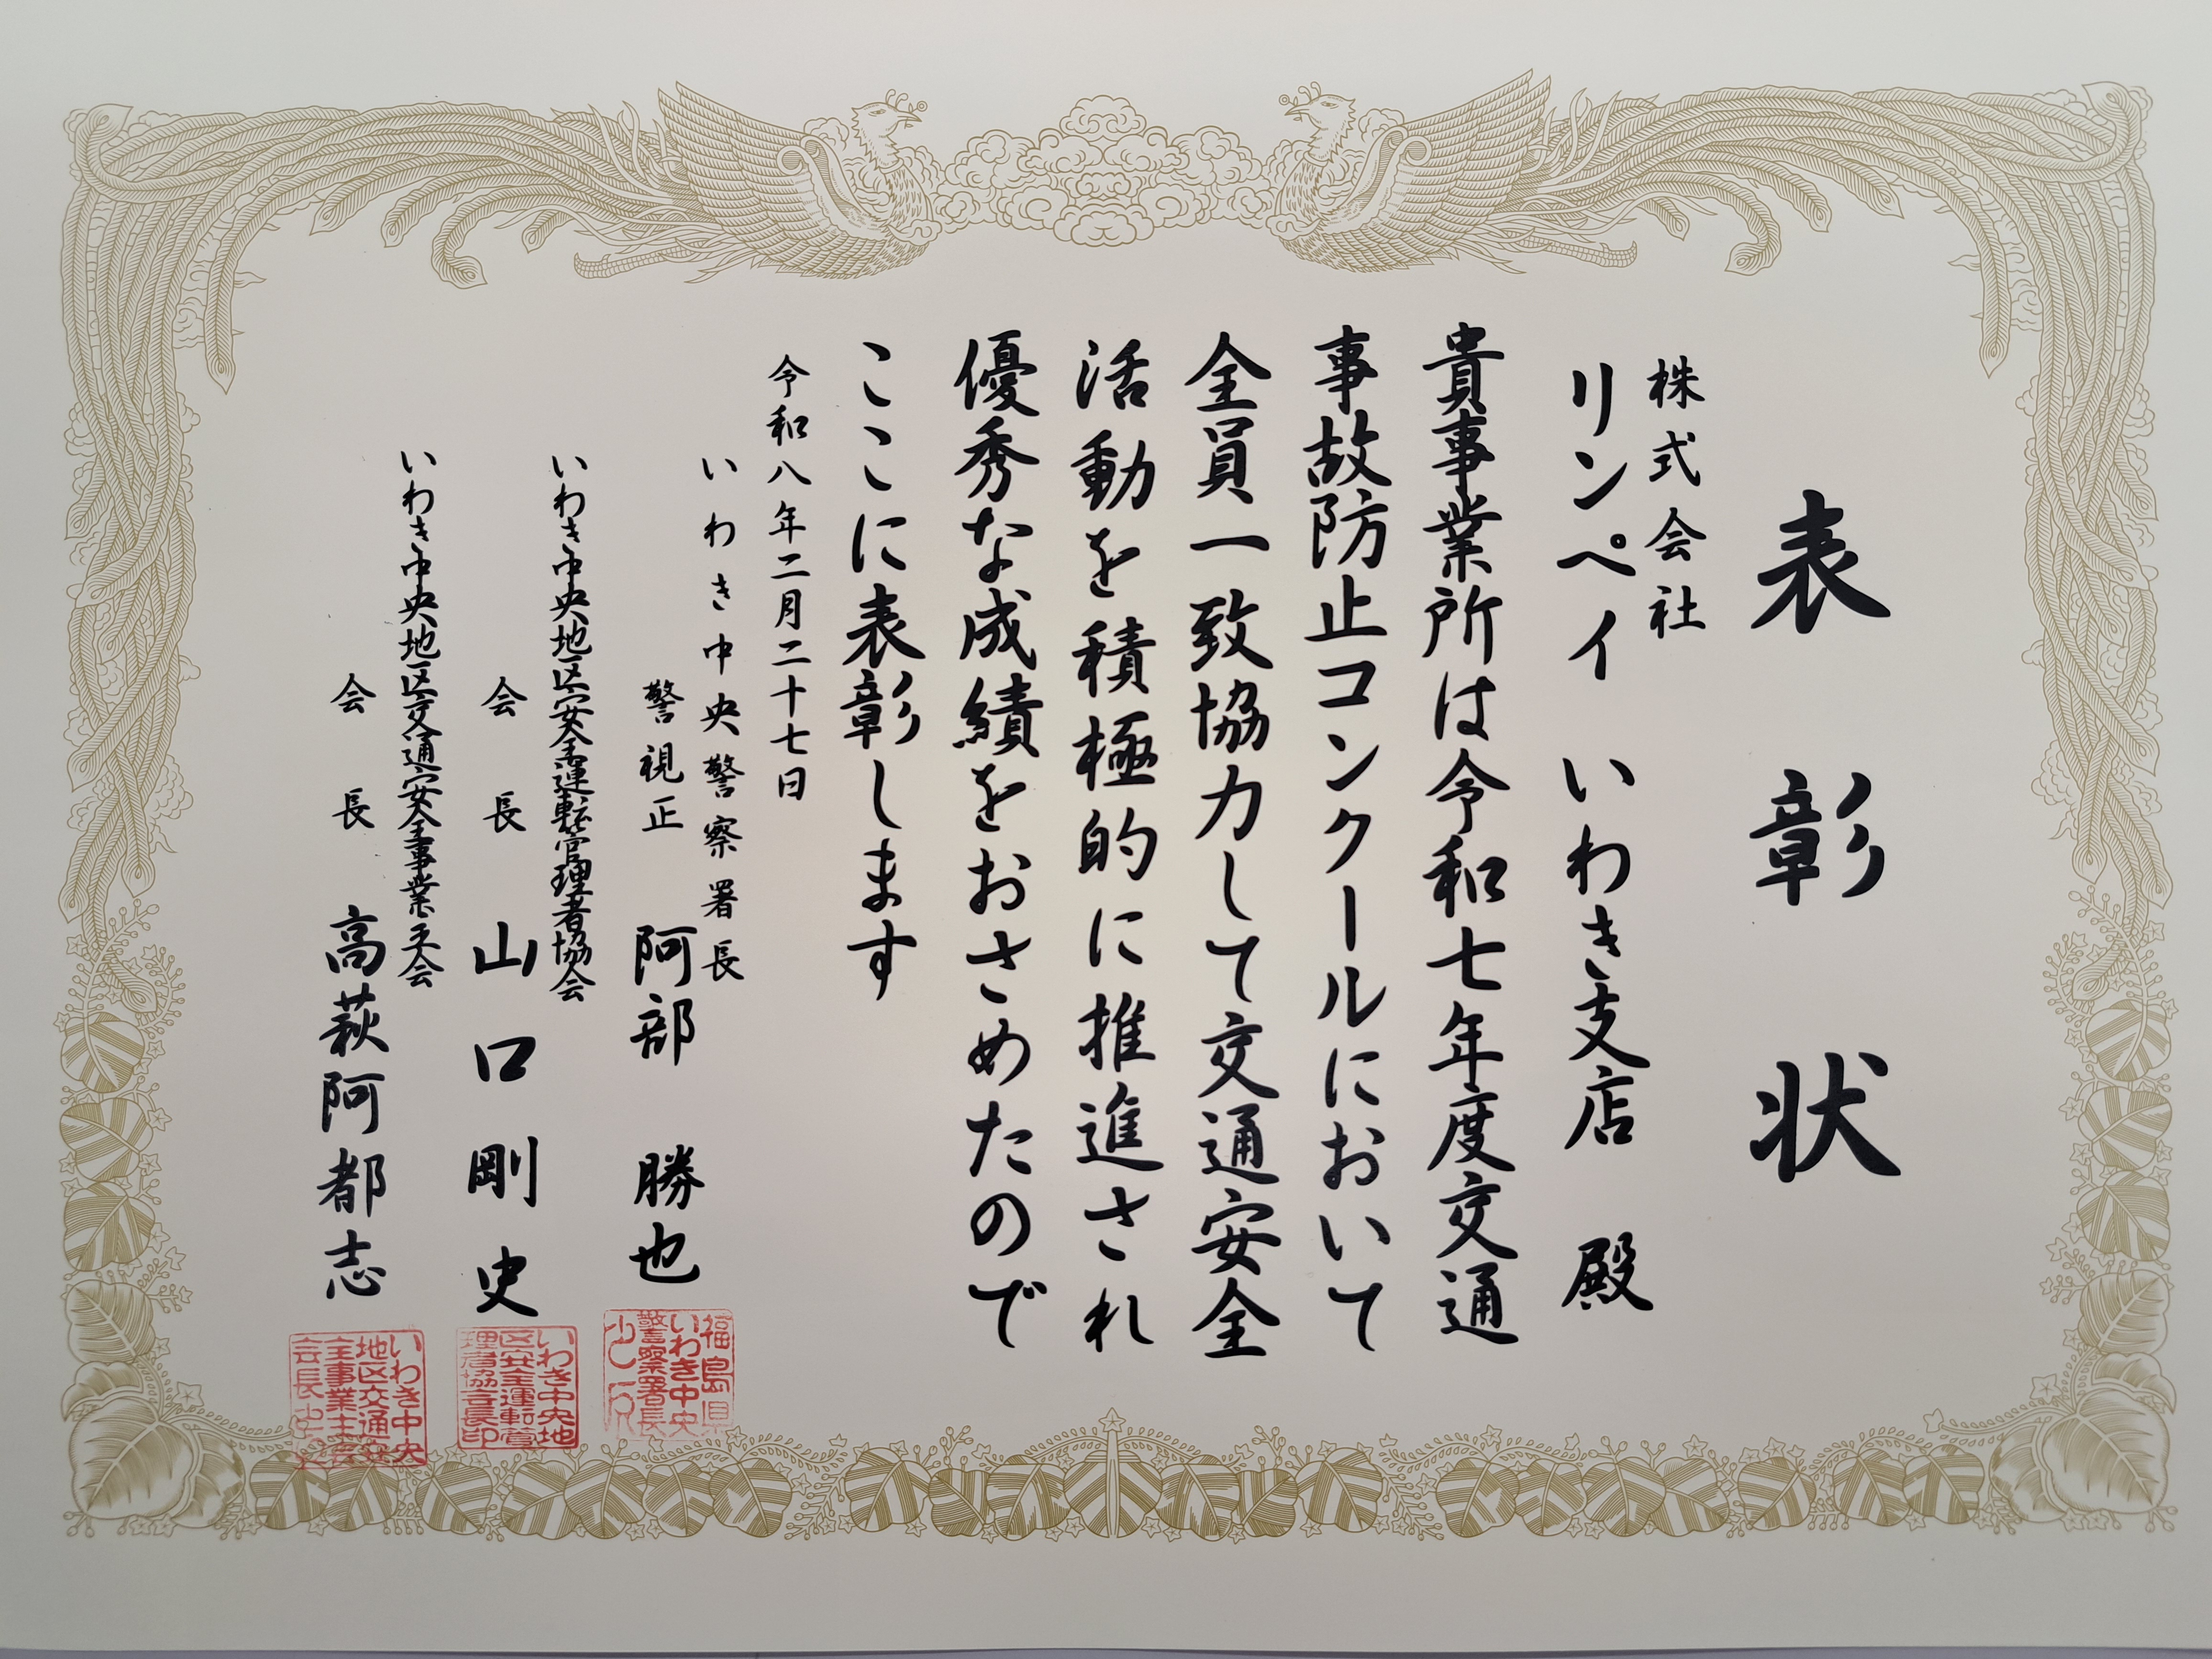 表彰状
株式会社
リンペイ いわき支店 殿
貴事業所は令和七年度交通
事故防止コンクールにおいて
全員一致協力して交通安全
活動を積極的に推進され
優秀な成績をおさめたので
ここに表彰します
令和八年二月二十七日
いわき中央警察署長
警視正 阿部 勝也
いわき中央地区安全運転管理者協会
会長 山口剛史
いわき中央地区交通安全事業主会
会長 高萩阿都志
福島県
いわき中央
警察署長
いわき中央地
区安全運転管
理者協会長印
いわき中央
地区交通安
全事業主会
会長